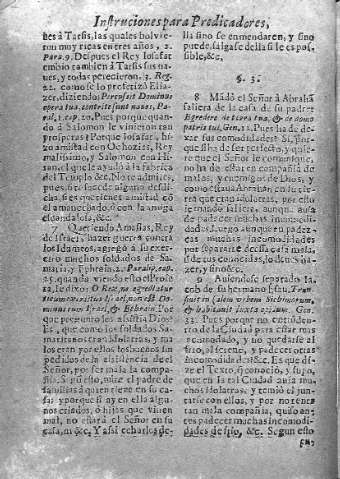 Instrucciones para Predicadores,
nes à Tarsis, las quales bolvie-
ron muy ricas en tres años, 2.
Para. 9. Despues el Rey Iosafat
embio tambien à Tarsis sus na-
ves, y todas perecieron, 3. Reg.
22. como se lo profetizò Elia-
zer, diziendo: Percussit Dominus
opera tua, contritæ sunt naves, Pa-
ral. 20. Pues porque quan-
do à Salomon le vinieron tan
prosperas? Porque Iosafat, hi-
zo amistad con Ochozias, Rey
malissimo, y Salomon con Hi-
ran, el que le ayudò à la fabrica
del Templo &c. Note admires,
pues, si te sucede alguna desdi-
cha, si es que tienes amistad cõ
el amancebado, con la amiga
escandalosa, &c.
7 Queriendo Amasias, Rey
de Israel, hazer guerra contra
los Idumeos, agregò à su exer-
cito muchos soldados de Sa-
maria, y Ephrain, 2. Paralip. cap.
25. quando viendo esto el Profe-
ta, le dixo: O Rex, ne egrediatur
tecum exercitus Israel, non est Do-
minus cum Israel, & Ephrain. Por
que pregunto los assistia Dios?
Es, que como los soldados Sa-
maritanos eran idolatras, y ma-
los eran por ellos, los buenos im-
pedidos de la assistencia del
Señor, por ser mala la compa-
ñia. Si pues, mire el padre de
familias à quien tiene en su ca-
sa; porque si ay en ella algu-
nos criados, ò hijos que viven
mal, no estarà el Señor en su
casa, &c. Y assi echarles de-
lla sino se enmendaren, y sino
puede, salgase della si le es pos-
sible, &c.
§. 3.
8 Mãdò el Señor à Abrahã
saliera de la casa de su padre:
Egredere de terra tua, & de domo
patris tui, Gen. 12. Pues ha de de-
xar sus comodidades? Si, por-
que si ha de ser perfecto, y quie-
re que el Señor le comunique,
no ha de estar en compañia de
malos, y enemigos de Dios, y
como estava Abrahan en su tierra
con otros que eran idolatras, por esso
le mandò saliera, aunque aya
de padecer muchas incomodi-
dades. Luego aunque en padez-
cas muchas incomodidades
por separarte de essa casa mala,
de tus conocidos, las has de de-
xar, y sino &c.
9 Aviendose separado Ia-
cob de su hermano Esau, Tran-
sivit in Salem urbem Sichimorum,
& habitavit juxta oppidum, Gen.
33. Pues porque no entrò den-
tro de la Ciudad para estar mas
acomodado, y no quedarse al
frio, al sereno, y padecer otras
incomodidades? &c. Es que di-
ze el Texto, q conociò, y supo,
que en la tal Ciudad avia mu-
chos idolatras, y temiò el jun-
tarse con ellos, y por no tener
tan mala compañia, quiso an-
tes padecer muchas incomo-
didades de frio, &c. Segun esto